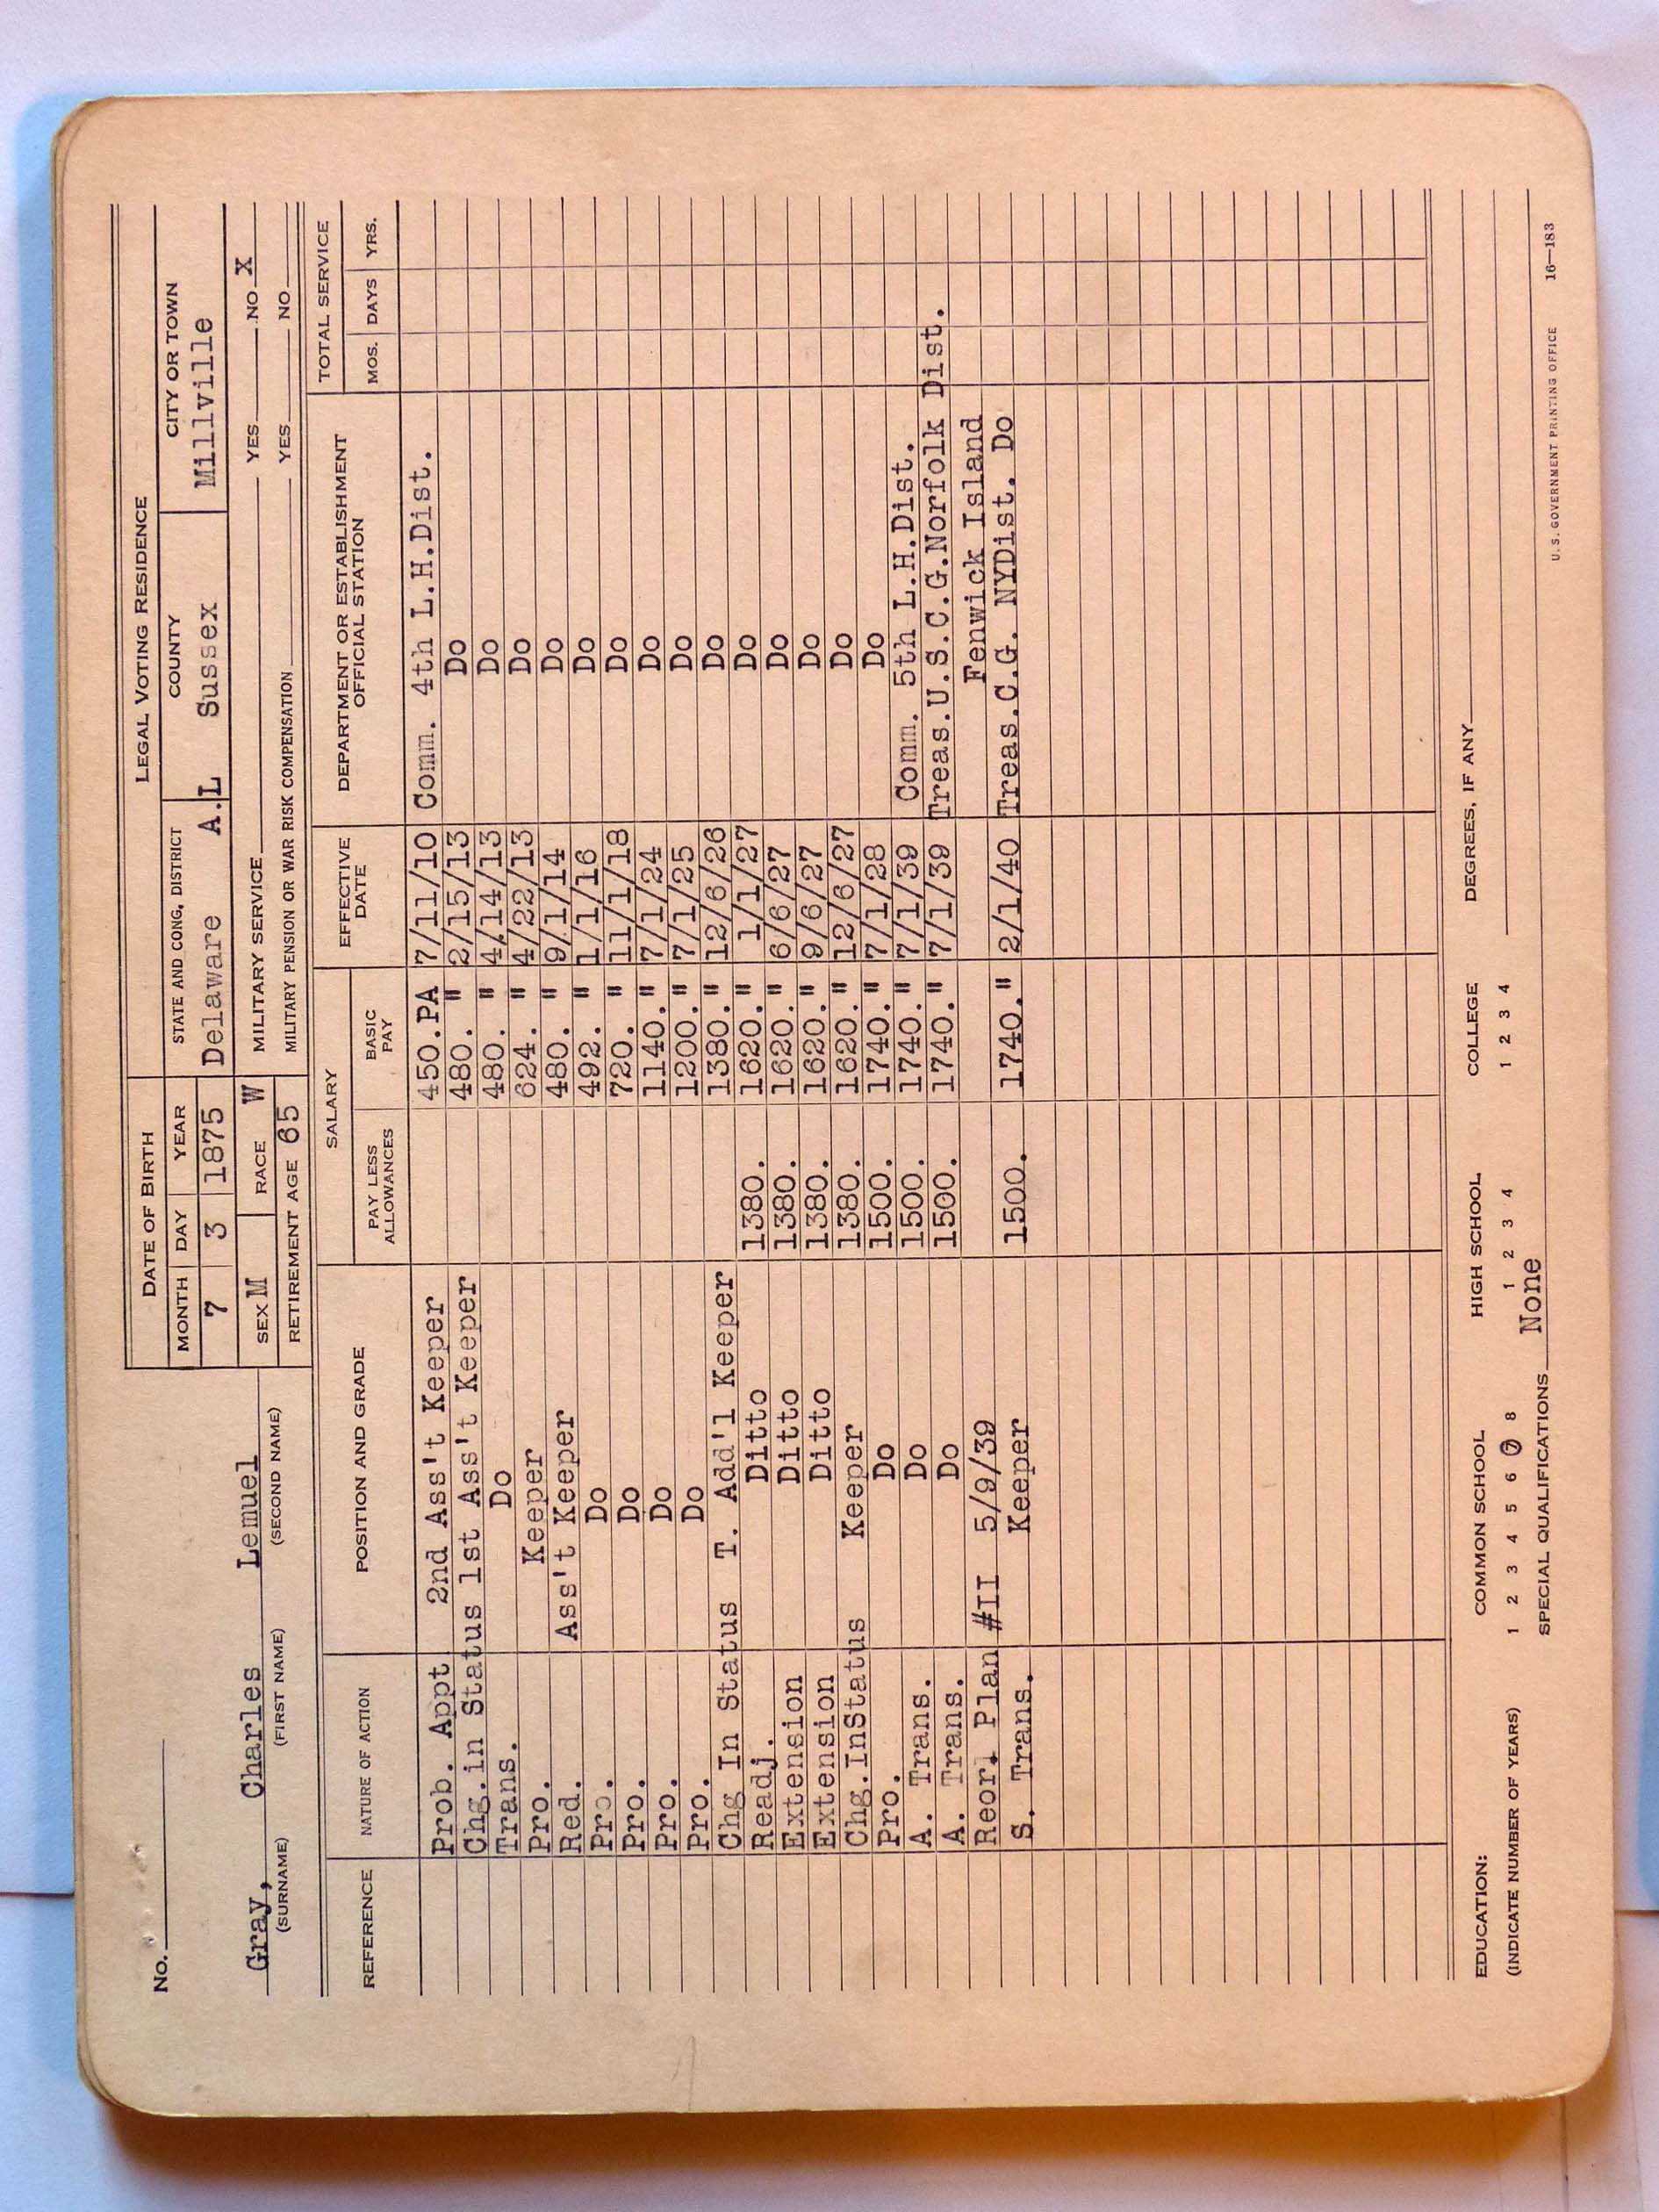 No.
DATE OF BIRTH LEGAL VOTING RESIDENCE
MONTH DAY YEAR STATE AND CONG. DISTRICT COUNTY CITY OR TOWN
7 3 1875 Delaware A.L Sussex Millville
Gray, Charles Lemuel
(SURNAME) (FIRST NAME) (SECOND NAME)
SEX M RACE W MILITARY SERVICE YES NO X
RETIREMENT AGE 65 MILITARY PENSION OR WAR RISK COMPENSATION YES NO
REFERENCE NATURE OF ACTION POSITION AND GRADE SALARY EFFECTIVE DATE DEPARTMENT OR ESTABLISHMENT OFFICIAL STATION TOTAL SERVICE
PAY LESS ALLOWANCES BASIC PAY MOS. DAYS YRS.
Prob. Appt 2nd Ass't Keeper 450.PA 7/11/10 Comm. 4th L.H.Dist.
Chg.in Status 1st Ass't Keeper 480. " 2/15/13 Do
Trans. Do 480. " 4/14/13 Do
Pro. Keeper 624. " 4/22/13 Do
Red. Ass't Keeper 480. " 9/1/14 Do
Pro. Do 492. " 1/1/16 Do
Pro. Do 720. " 11/1/18 Do
Pro. Do 1140. " 7/1/24 Do
Pro. Do 1200. " 7/1/25 Do
Chg In Status T. Add'l Keeper 1380. " 12/6/26 Do
Readj. Ditto 1380. 1620. " 1/1/27 Do
Extension Ditto 1380. 1620. " 6/6/27 Do
Extension Ditto 1380. 1620. " 9/6/27 Do
Chg.InStatus Keeper 1380. 1620. " 12/6/27 Do
Pro. Do 1500. 1740. " 7/1/28 Do
A. Trans. Do 1500. 1740. " 7/1/39 Comm. 5th L.H.Dist.
A. Trans. Do 1500. 1740. " 7/1/39 Treas.U.S.C.G.Norfolk Dist.
Reorl Plan #II 5/9/39 Fenwick Island
S. Trans. Keeper 1500. 1740. " 2/1/40 Treas.C.G. NYDist. Do
EDUCATION: COMMON SCHOOL HIGH SCHOOL COLLEGE DEGREES, IF ANY
(INDICATE NUMBER OF YEARS) 1 2 3 4 5 6 7 8 1 2 3 4 1 2 3 4
SPECIAL QUALIFICATIONS None
U. S. GOVERNMENT PRINTING OFFICE 16—183